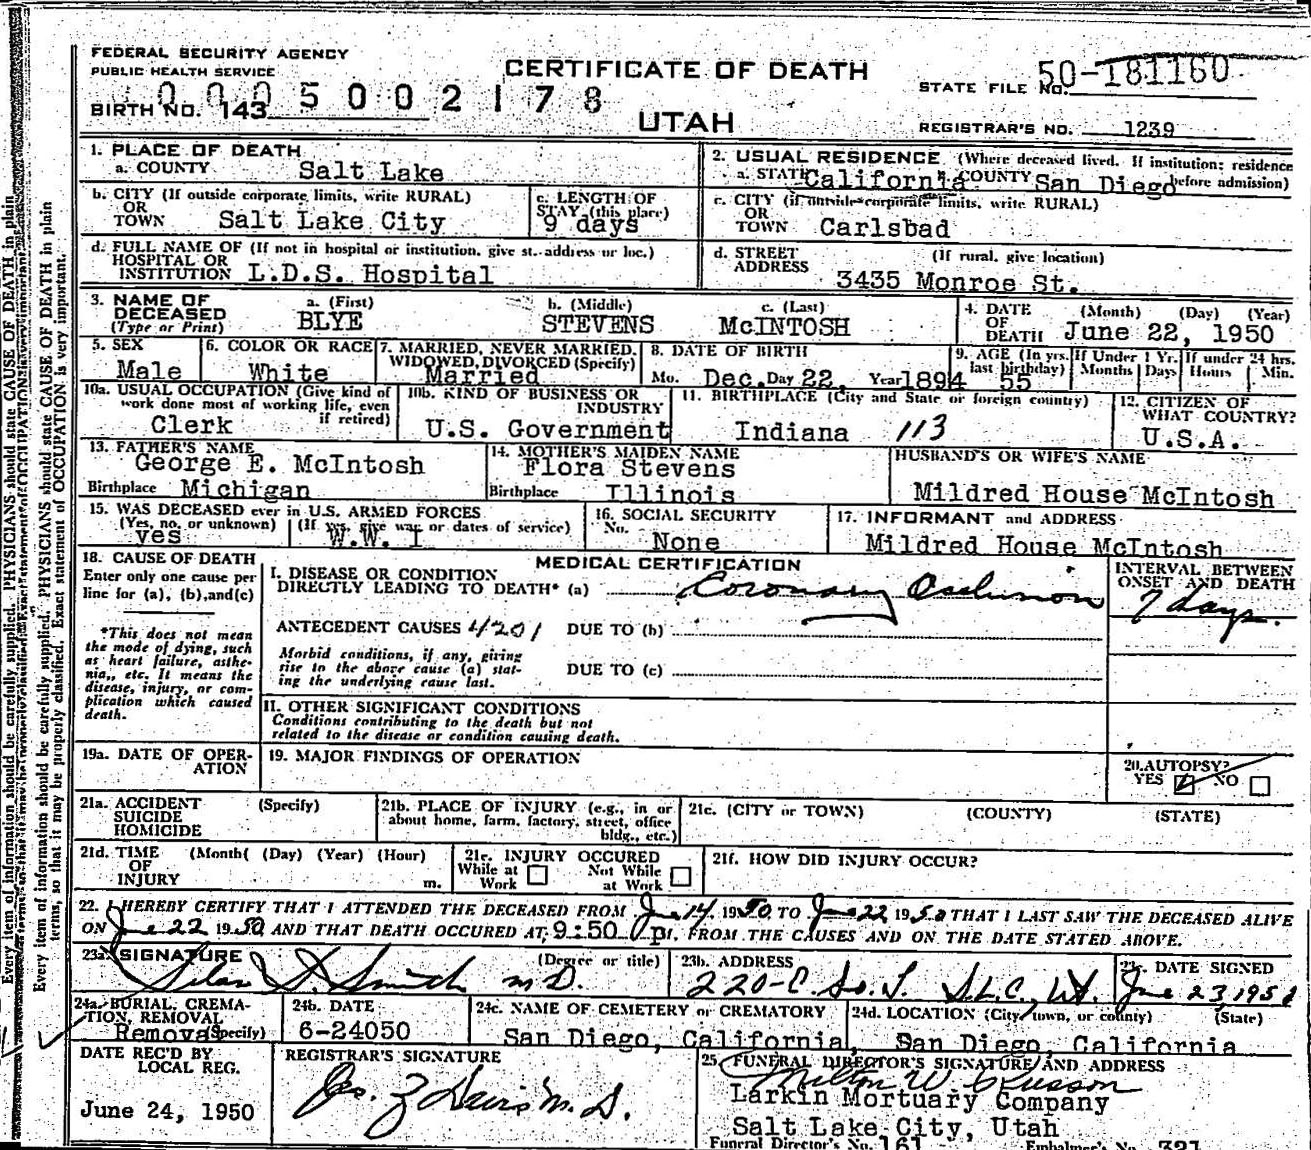 FEDERAL SECURITY AGENCY
PUBLIC HEALTH SERVICE
BIRTH NO. 143
0005002178
CERTIFICATE OF DEATH
UTAH
STATE FILE NO. 50-181160
REGISTRAR'S NO. 1239
1. PLACE OF DEATH
a. COUNTY Salt Lake
b. CITY (If outside corporate limits, write RURAL)
OR
TOWN Salt Lake City
c. LENGTH OF
STAY (this place)
9 days
d. FULL NAME OF (If not in hospital or institution, give st. address or loc.)
HOSPITAL OR
INSTITUTION L.D.S. Hospital
2. USUAL RESIDENCE (Where deceased lived. If institution: residence
before admission)
a. STATE California b. COUNTY San Diego
c. CITY (if outside corporate limits, write RURAL)
OR
TOWN Carlsbad
d. STREET (If rural, give location)
ADDRESS 3435 Monroe St.
3. NAME OF
DECEASED
(Type or Print)
a. (First) b. (Middle) c. (Last)
BLYE STEVENS McINTOSH
4. DATE (Month) (Day) (Year)
OF
DEATH June 22, 1950
5. SEX
Male
6. COLOR OR RACE
White
7. MARRIED, NEVER MARRIED,
WIDOWED, DIVORCED (Specify)
Married
8. DATE OF BIRTH
Mo. Dec. Day 22, Year 1894
9. AGE (In yrs.
last birthday)
55
If Under 1 Yr.
Months Days
If under 24 hrs.
Hours Min.
10a. USUAL OCCUPATION (Give kind of
work done most of working life, even
if retired)
Clerk
10b. KIND OF BUSINESS OR
INDUSTRY
U.S. Government
11. BIRTHPLACE (City and State or foreign country)
Indiana 113
12. CITIZEN OF
WHAT COUNTRY?
U.S.A.
13. FATHER'S NAME
George E. McIntosh
Birthplace Michigan
14. MOTHER'S MAIDEN NAME
Flora Stevens
Birthplace Illinois
HUSBAND'S OR WIFE'S NAME
Mildred House McIntosh
15. WAS DECEASED ever in U.S. ARMED FORCES
(Yes, no, or unknown) (If yes, give war or dates of service)
yes W.W. I
16. SOCIAL SECURITY
No. None
17. INFORMANT and ADDRESS
Mildred House McIntosh
18. CAUSE OF DEATH
Enter only one cause per
line for (a), (b), and (c)
*This does not mean
the mode of dying, such
as heart failure, asthe-
nia, etc. It means the
disease, injury, or com-
plication which caused
death.
MEDICAL CERTIFICATION
I. DISEASE OR CONDITION
DIRECTLY LEADING TO DEATH* (a) Coronary Occlusion
ANTECEDENT CAUSES 4201 DUE TO (b)
Morbid conditions, if any, giving
rise to the above cause (a) stat-
ing the underlying cause last.
DUE TO (c)
II. OTHER SIGNIFICANT CONDITIONS
Conditions contributing to the death but not
related to the disease or condition causing death.
INTERVAL BETWEEN
ONSET AND DEATH
7 days.
19a. DATE OF OPER-
ATION
19. MAJOR FINDINGS OF OPERATION
20. AUTOPSY?
YES NO
21a. ACCIDENT (Specify)
SUICIDE
HOMICIDE
21b. PLACE OF INJURY (e.g., in or
about home, farm, factory, street, office
bldg., etc.)
21c. (CITY or TOWN) (COUNTY) (STATE)
21d. TIME (Month( (Day) (Year) (Hour)
OF
INJURY m.
21e. INJURY OCCURED
While at Not While
Work at Work
21f. HOW DID INJURY OCCUR?
22. I HEREBY CERTIFY THAT I ATTENDED THE DECEASED FROM June 14 1950 TO June 22 1950 THAT I LAST SAW THE DECEASED ALIVE
ON June 22 1950 AND THAT DEATH OCCURED AT 9:50 p m. FROM THE CAUSES AND ON THE DATE STATED ABOVE.
23a. SIGNATURE (Degree or title)
Silas S. Smith M.D.
23b. ADDRESS
220-C. So. T. S.L.C., Ut.
23c. DATE SIGNED
June 23, 1950
24a. BURIAL, CREMA-
TION, REMOVAL
(Specify)
Removal
24b. DATE
6-24050
24c. NAME OF CEMETERY or CREMATORY
San Diego, California
24d. LOCATION (City, town, or county) (State)
San Diego, California
DATE REC'D BY
LOCAL REG.
June 24, 1950
REGISTRAR'S SIGNATURE
Jos. Z Davis M.D.
25. FUNERAL DIRECTOR'S SIGNATURE AND ADDRESS
Larkin Mortuary Company
Salt Lake City, Utah
Funeral Director's No. 161 Embalmer's No. 321
Every item of information should be carefully supplied. PHYSICIANS should state CAUSE OF DEATH in plain
Every item of information should be carefully supplied. PHYSICIANS should state CAUSE OF DEATH in plain
terms, so that it may be properly classified. Exact statement of OCCUPATION is very important.